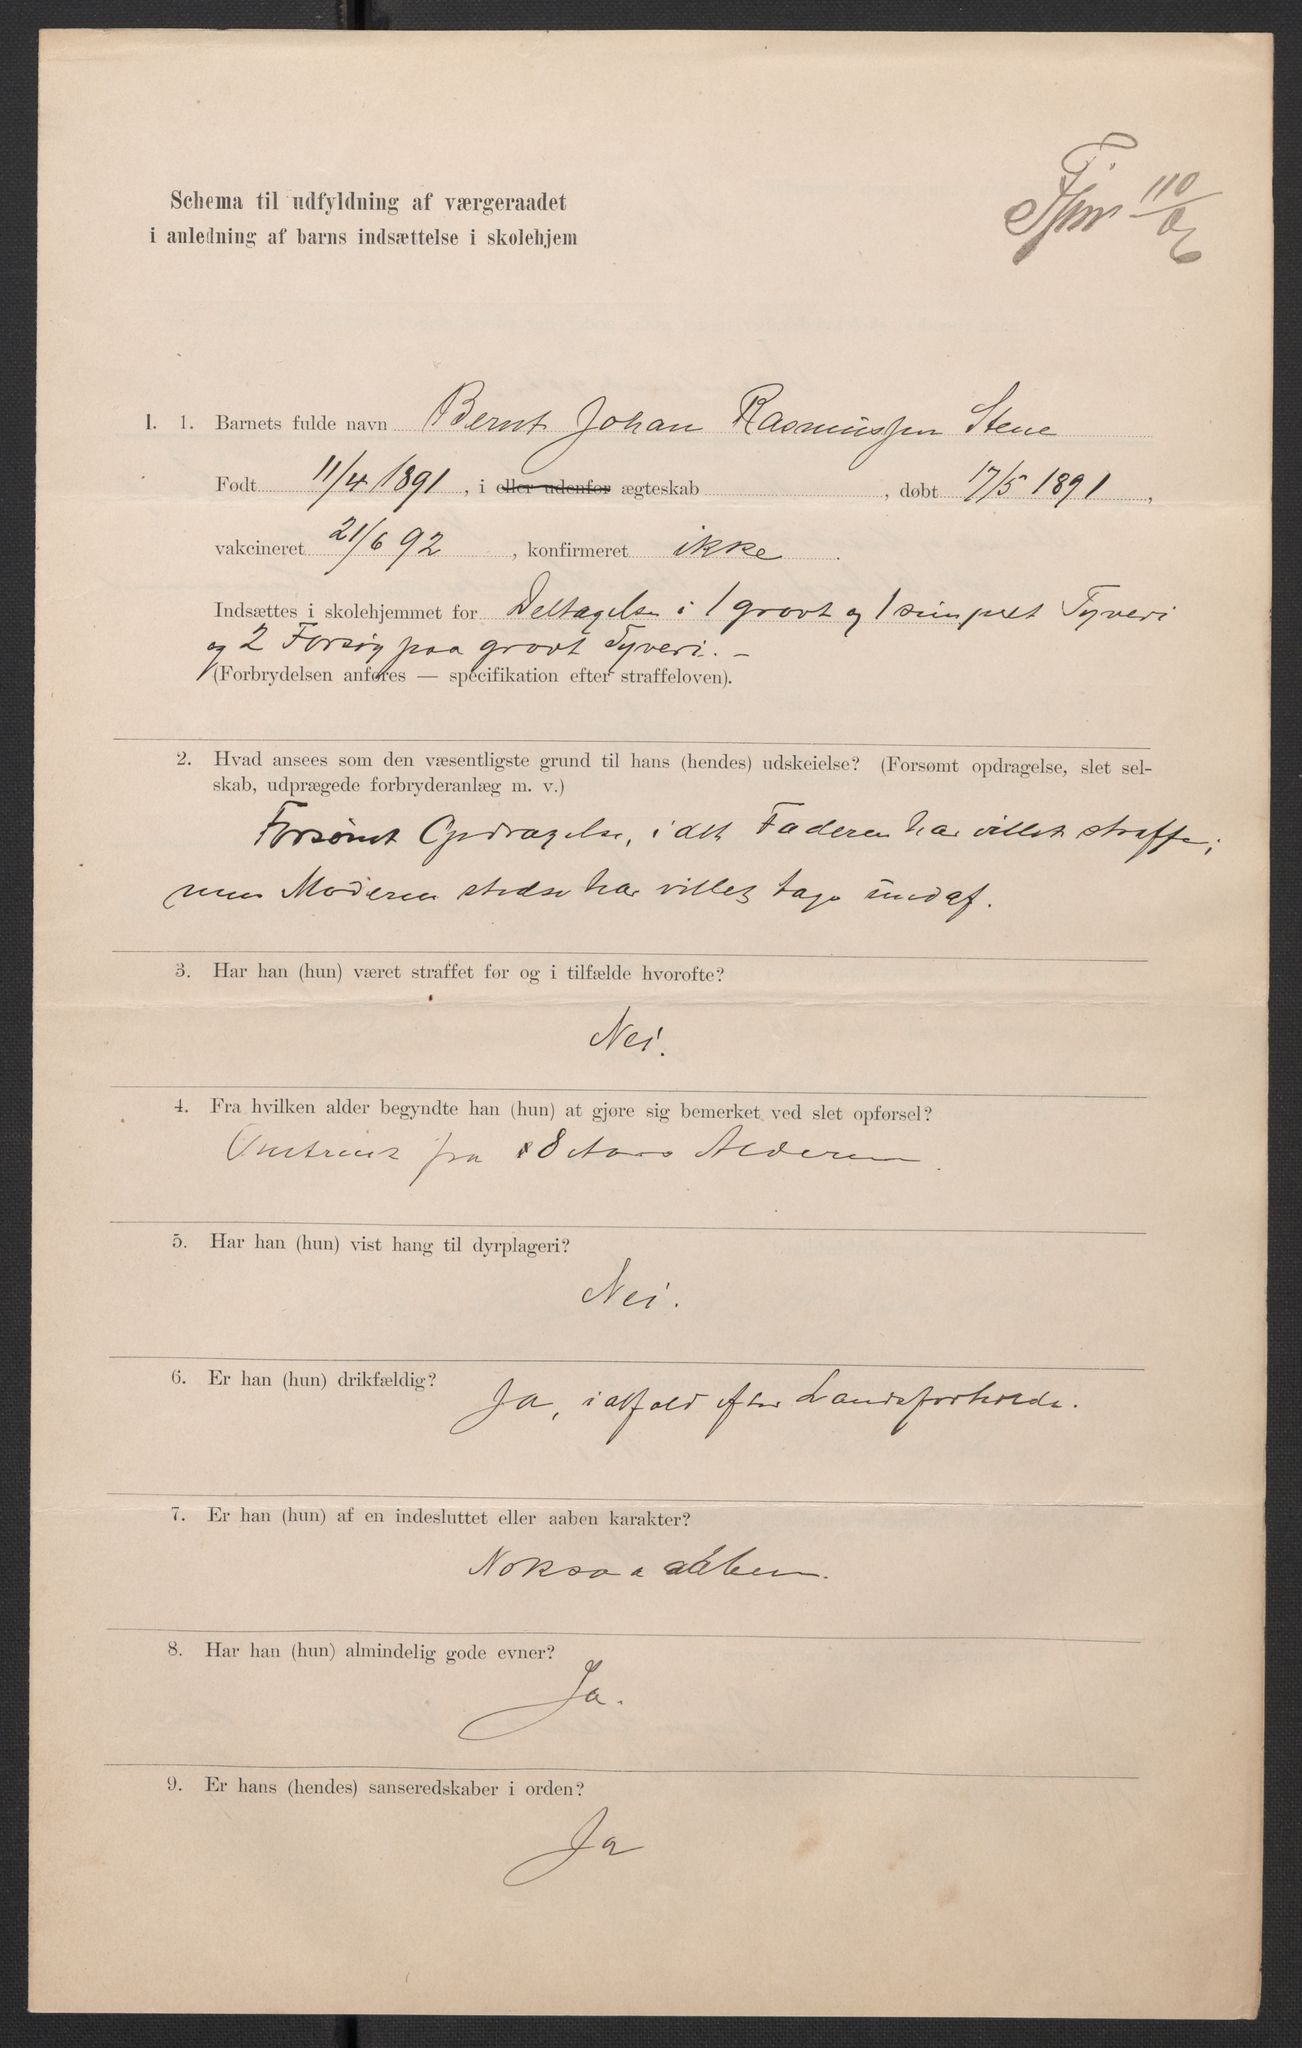 110/06
Schema til udfyldning af værgeraadet
i anledning af barns indsættelse i skolehjem
I. 1. Barnets fulde navn Bernt Johan Rasmussen Stene
Født 11/4 1891, i eller udenfor ægteskab , døbt 17/5 1891,
vakcineret 21/6 92, konfirmeret ikke.
Indsættes i skolehjemmet for Deltagelse i 1 grovt og 1 simpelt Tyveri
og 2 Forsøg paa grovt Tyveri. –
(Forbrydelsen anføres — specifikation efter straffeloven).
2. Hvad ansees som den væsentligste grund til hans (hendes) udskeielse? (Forsømt opdragelse, slet sel-
skab, udprægede forbryderanlæg m. v.)
Forsømt Opdragelse, idet Faderen har villet straffe;
men Moderen stedse har villet tage undaf.
3. Har han (hun) været straffet før og i tilfælde hvorofte?
Nei.
4. Fra hvilken alder begyndte han (hun) at gjøre sig bemerket ved slet opførsel?
Omtrent fra 8 Aars Alderen.
5. Har han (hun) vist hang til dyrplageri?
Nei.
6. Er han (hun) drikfældig?
Ja, ialfald efter Landsforholde.
7. Er han (hun) af en indesluttet eller aaben karakter?
Noksaa aaben.
8. Har han (hun) almindelig gode evner?
Ja.
9. Er hans (hendes) sanseredskaber i orden?
Ja